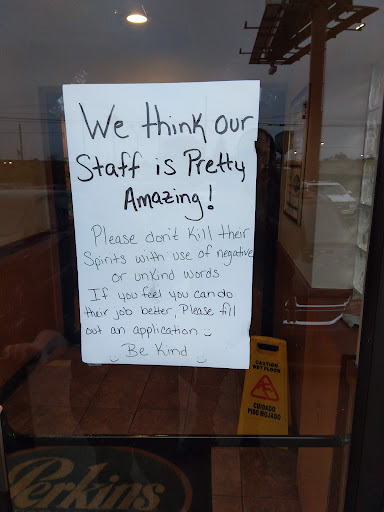 We think our
Staff is Pretty
Amazing!
Please don't Kill their
Spirits with use of negative
or unkind words
If you feel you can do
their job better, Please fill
out an application
Be Kind
CAUTION
WET FLOOR
CUIDADO
PISO MOJADO
Perkins